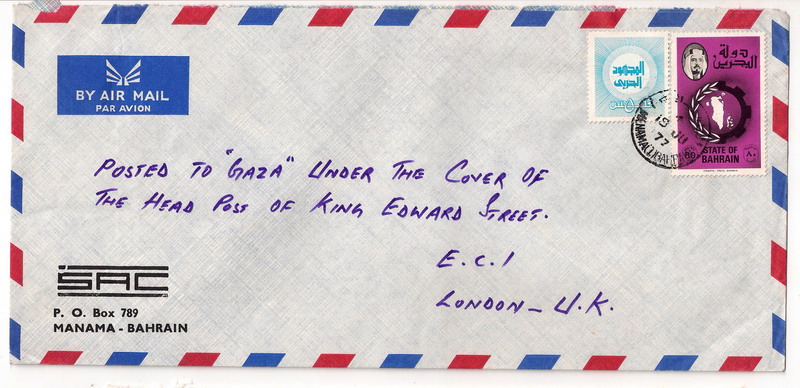 BY AIR MAIL
PAR AVION
المجهود
الحربي
دولة
البحرين
80
٨٠
STATE OF
BAHRAIN
19
77
POSTED TO "GAZA" UNDER THE COVER OF
THE HEAD POST OF KING EDWARD STREET.
E.C.1
LONDON - U.K.
SAC
P. O. Box 789
MANAMA - BAHRAIN